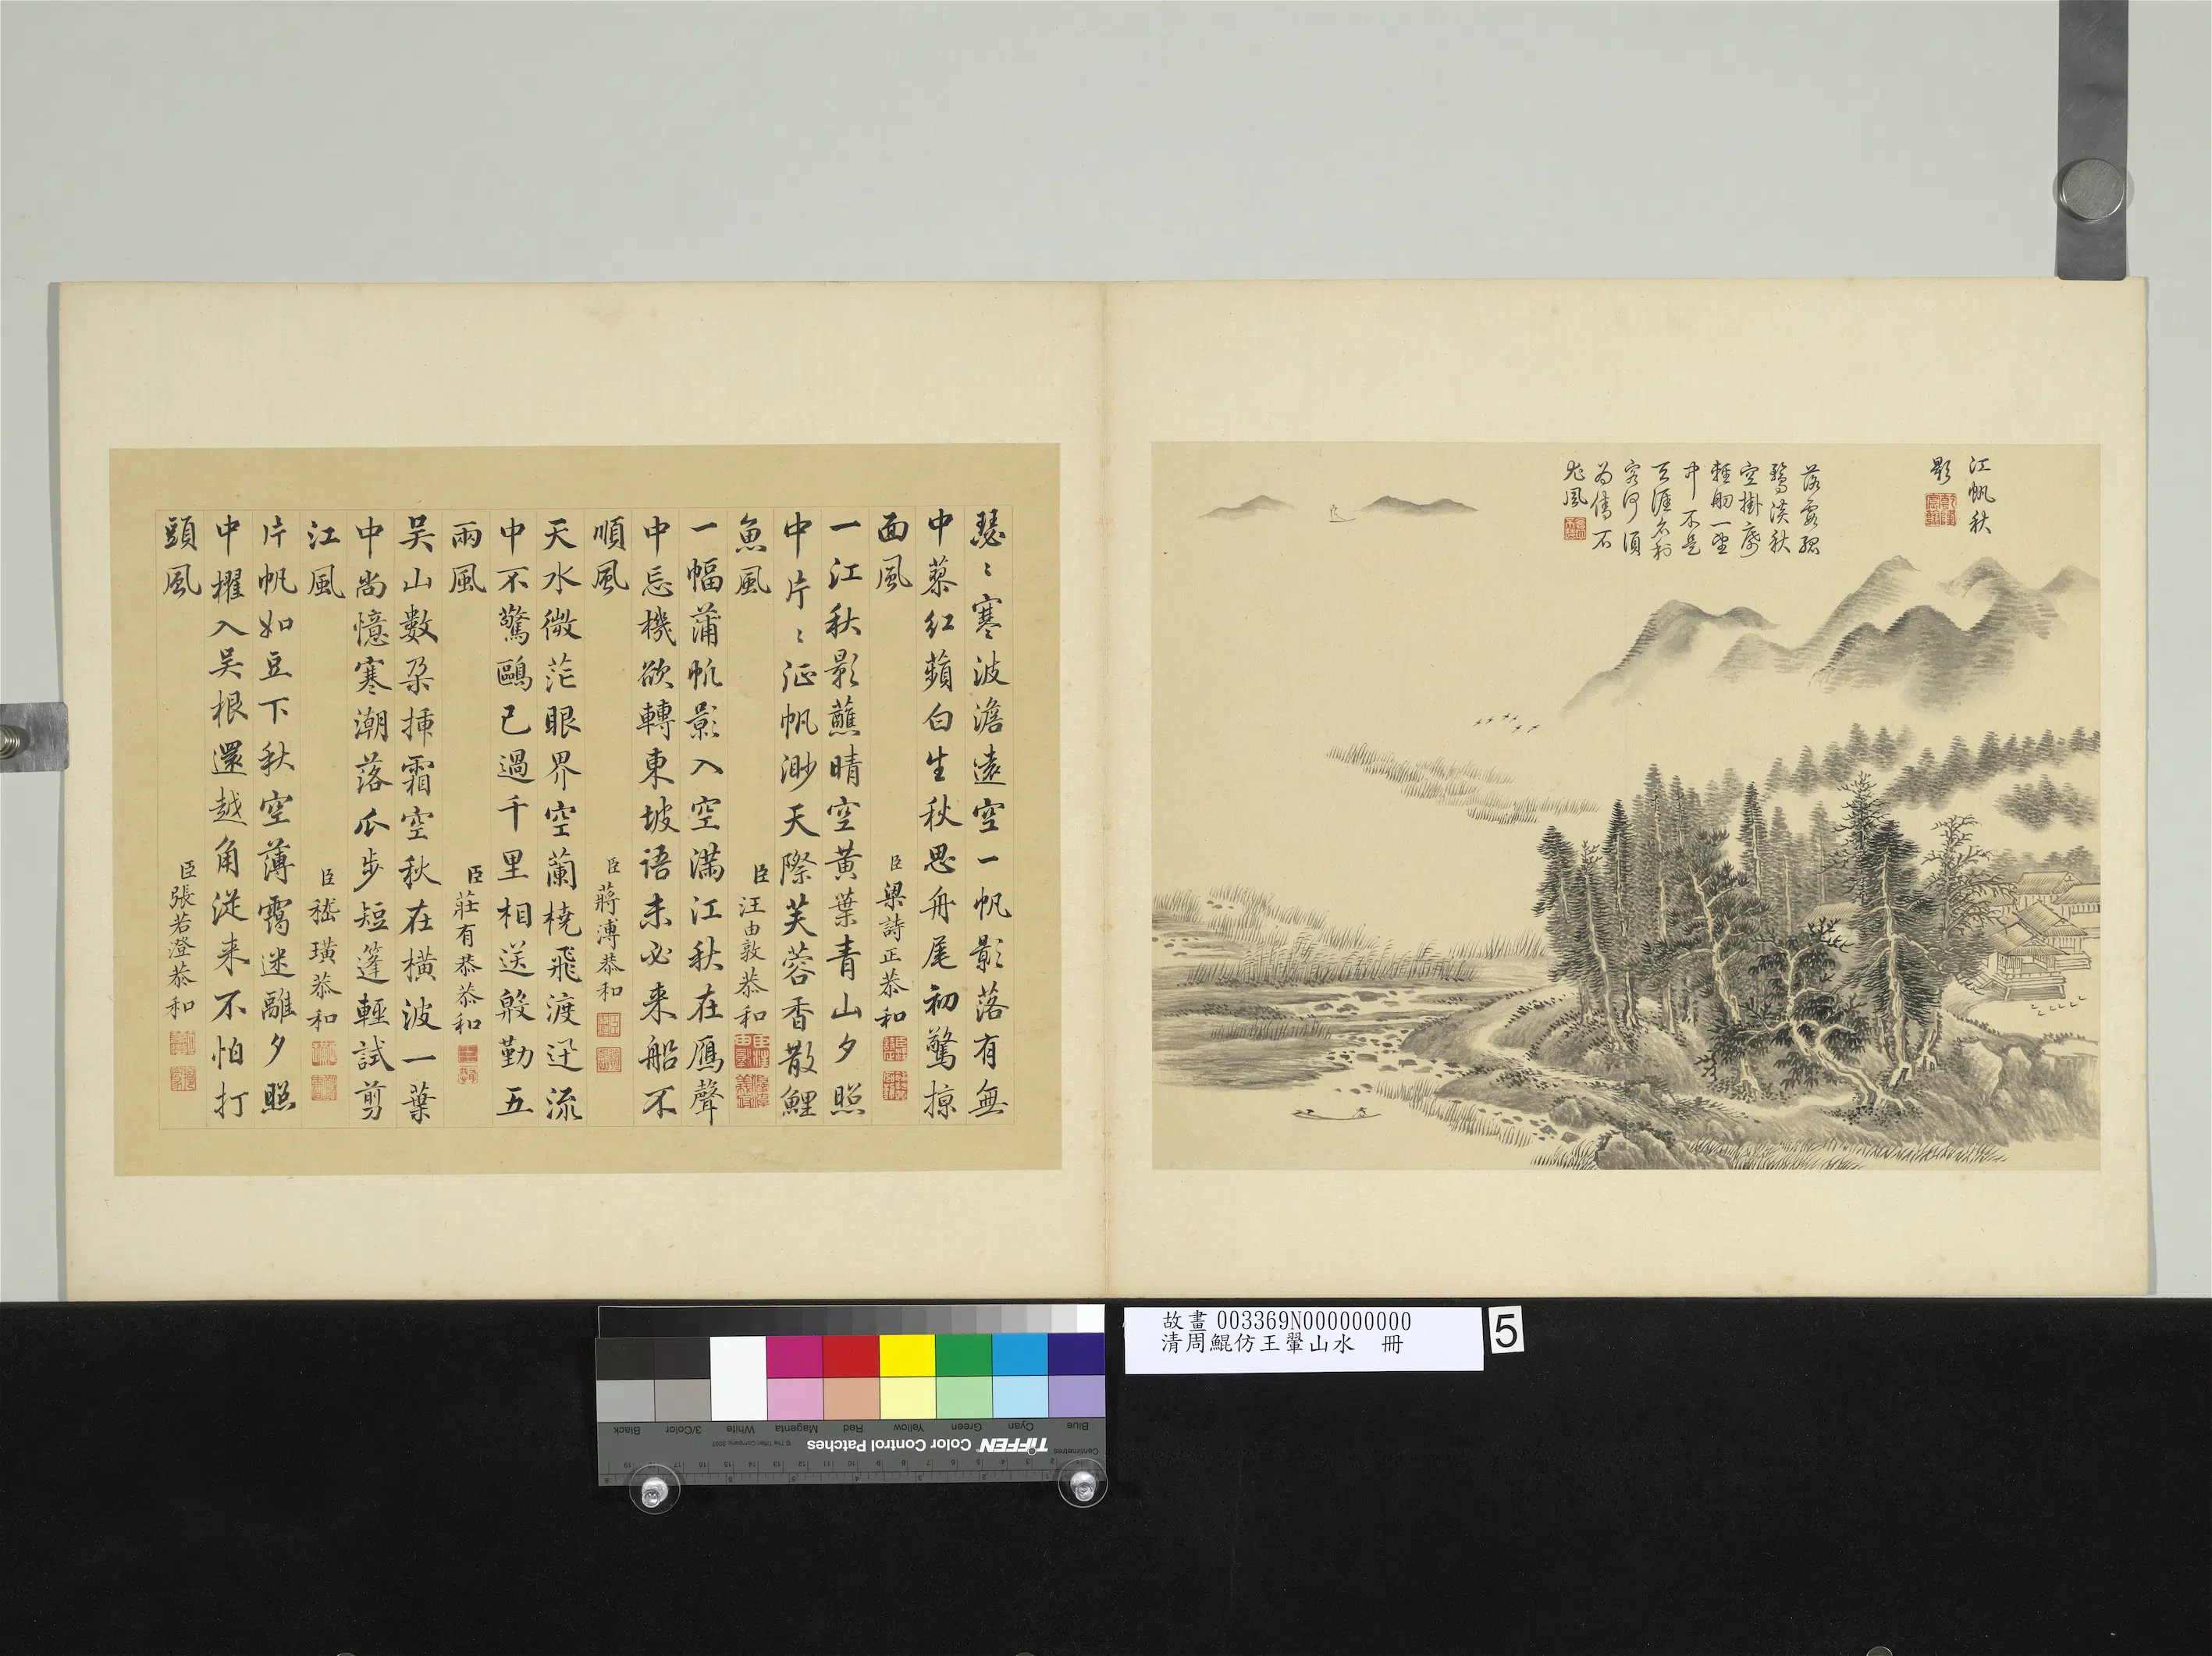 江帆秋
影
落霞孤
鶩淡秋
空掛席
輕舠一望
中不是
天涯名利
客何須
為借石
尤風
瑟〻寒波澹遠空一帆影落有無
中蓼紅蘋白生秋思舟尾初驚掠
面風
臣梁詩正恭和
一江秋影蘸晴空黃葉青山夕照
中片〻征帆渺天際芙蓉香散鯉
魚風
臣汪由敦恭和
一幅蒲帆影入空滿江秋在鴈聲
中忘機欲轉東坡語未必來船不
順風
臣蔣溥恭和
天水微茫眼界空蘭橈飛渡迅流
中不驚鷗已過千里相送殷勤五
兩風
臣莊有恭恭和
吳山數朶揷霜空秋在橫波一葉
中尚憶寒潮落瓜步短篷輕試剪
江風
臣嵇璜恭和
片帆如豆下秋空薄靄迷離夕照
中櫂入吳根還越角從来不怕打
頭風
臣張若澄恭和
故畫 003369N000000000
清周鯤仿王翬山水 冊
5
Blue
Cyan
Green
Yellow
Red
Magenta
White
3/Color
Black
TIFFEN Color Control Patches
© The Tiffen Company, 2007
Centimetres